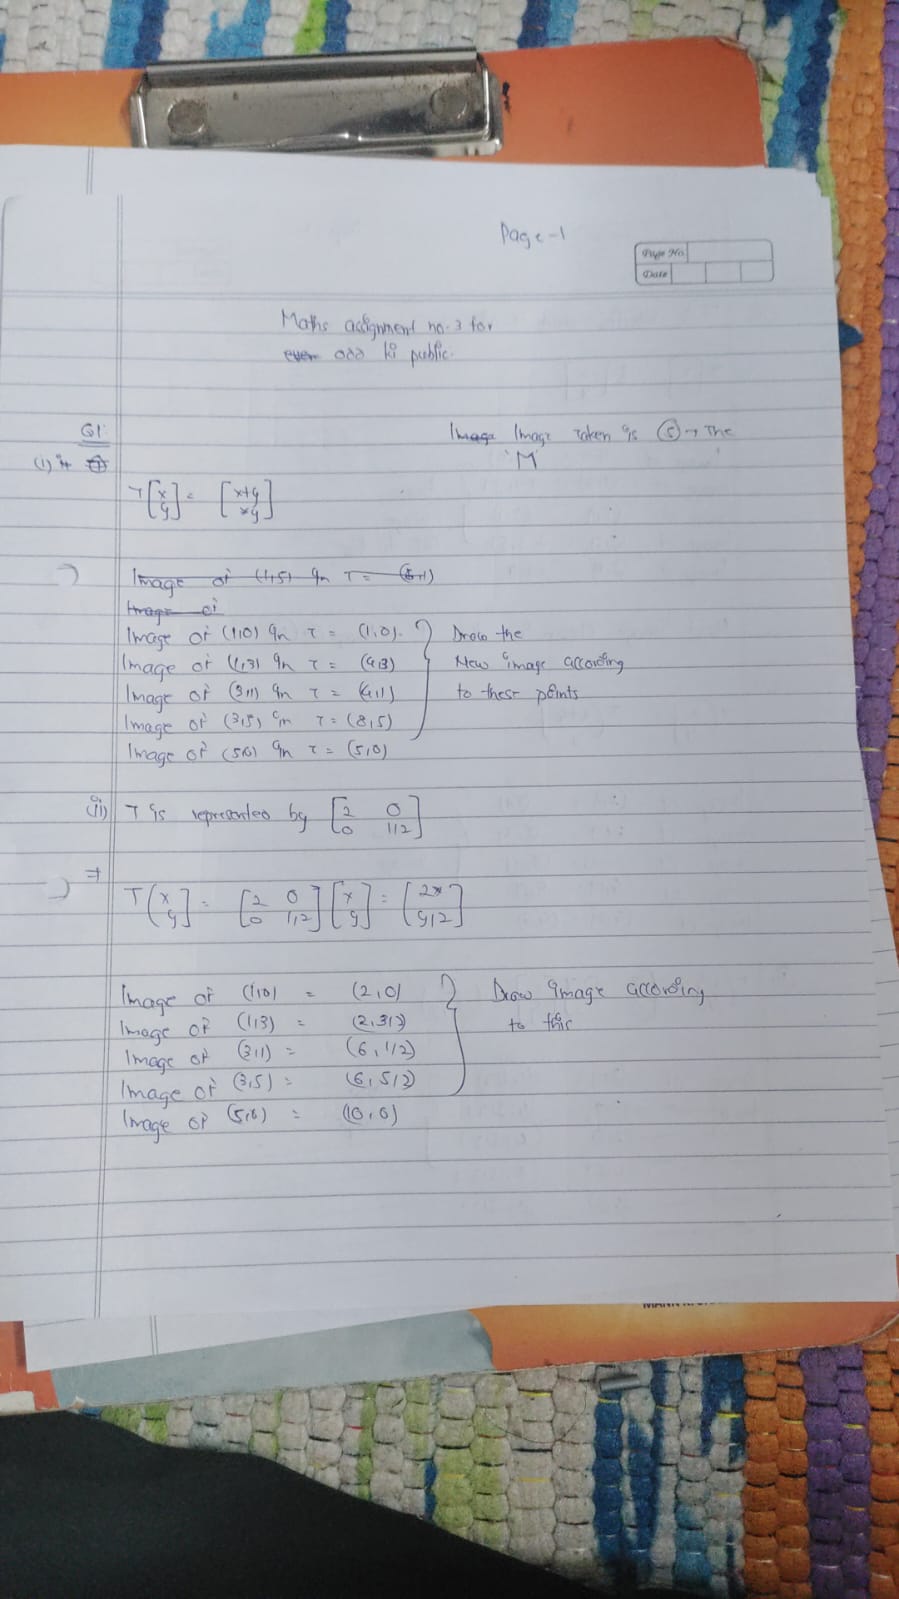 Page-1
Page No.
Date
Maths assignment no. 3 for
even odd ki public.
Q1.
Image Image taken is (5) → The
'M'
(1)
T[x y] = [x+y xy]
Image of (1,5) in T = (6,1)
Image of
Image of (1,0) in T = (1,0).
Image of (1,3) in T = (4,3)
Image of (3,1) in T = (4,1)
Image of (3,5) in T = (8,5)
Image of (5,0) in T = (5,0)
Draw the
New image according
to these points
(ii) T is represented by [2 0 0 1/2]
⇒
T[x y] = [2 0 0 1/2][x y] = [2x y/2]
Image of (1,0) = (2,0)
Image of (1,3) = (2,3/2)
Image of (3,1) = (6,1/2)
Image of (3,5) = (6,5/2)
Image of (5,0) = (10,0)
Draw image according
to this